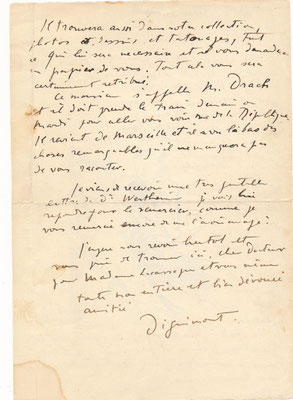 Il trouvera aussi dans votre collection,
photos et dessins et tatouages, tout
ce qui lui sera necessaire et il vous demandera
de vous. Tout cela vous sera
certainement retribué.
Ce monsieur s'appelle Mr. Drach
et il doit prendre le train demain ou
mardi pour aller vous voir rue de la République
Il revient de Marseille et il a vu là bas des
choses remarquables qu'il ne manquera pas
de vous raconter.
Je viens de recevoir une tres gentille
lettre du Dr Wertheimer je vais lui
repondre pour le remercier, comme je
vous remercie encore de me l'avoir
J'espere vous revoir bientot et
vous prie de trouver ici, cher Docteur
pour Madame Lacassagne et vous même
toute mon entière et bien dévouée
amitié
Dignimont.